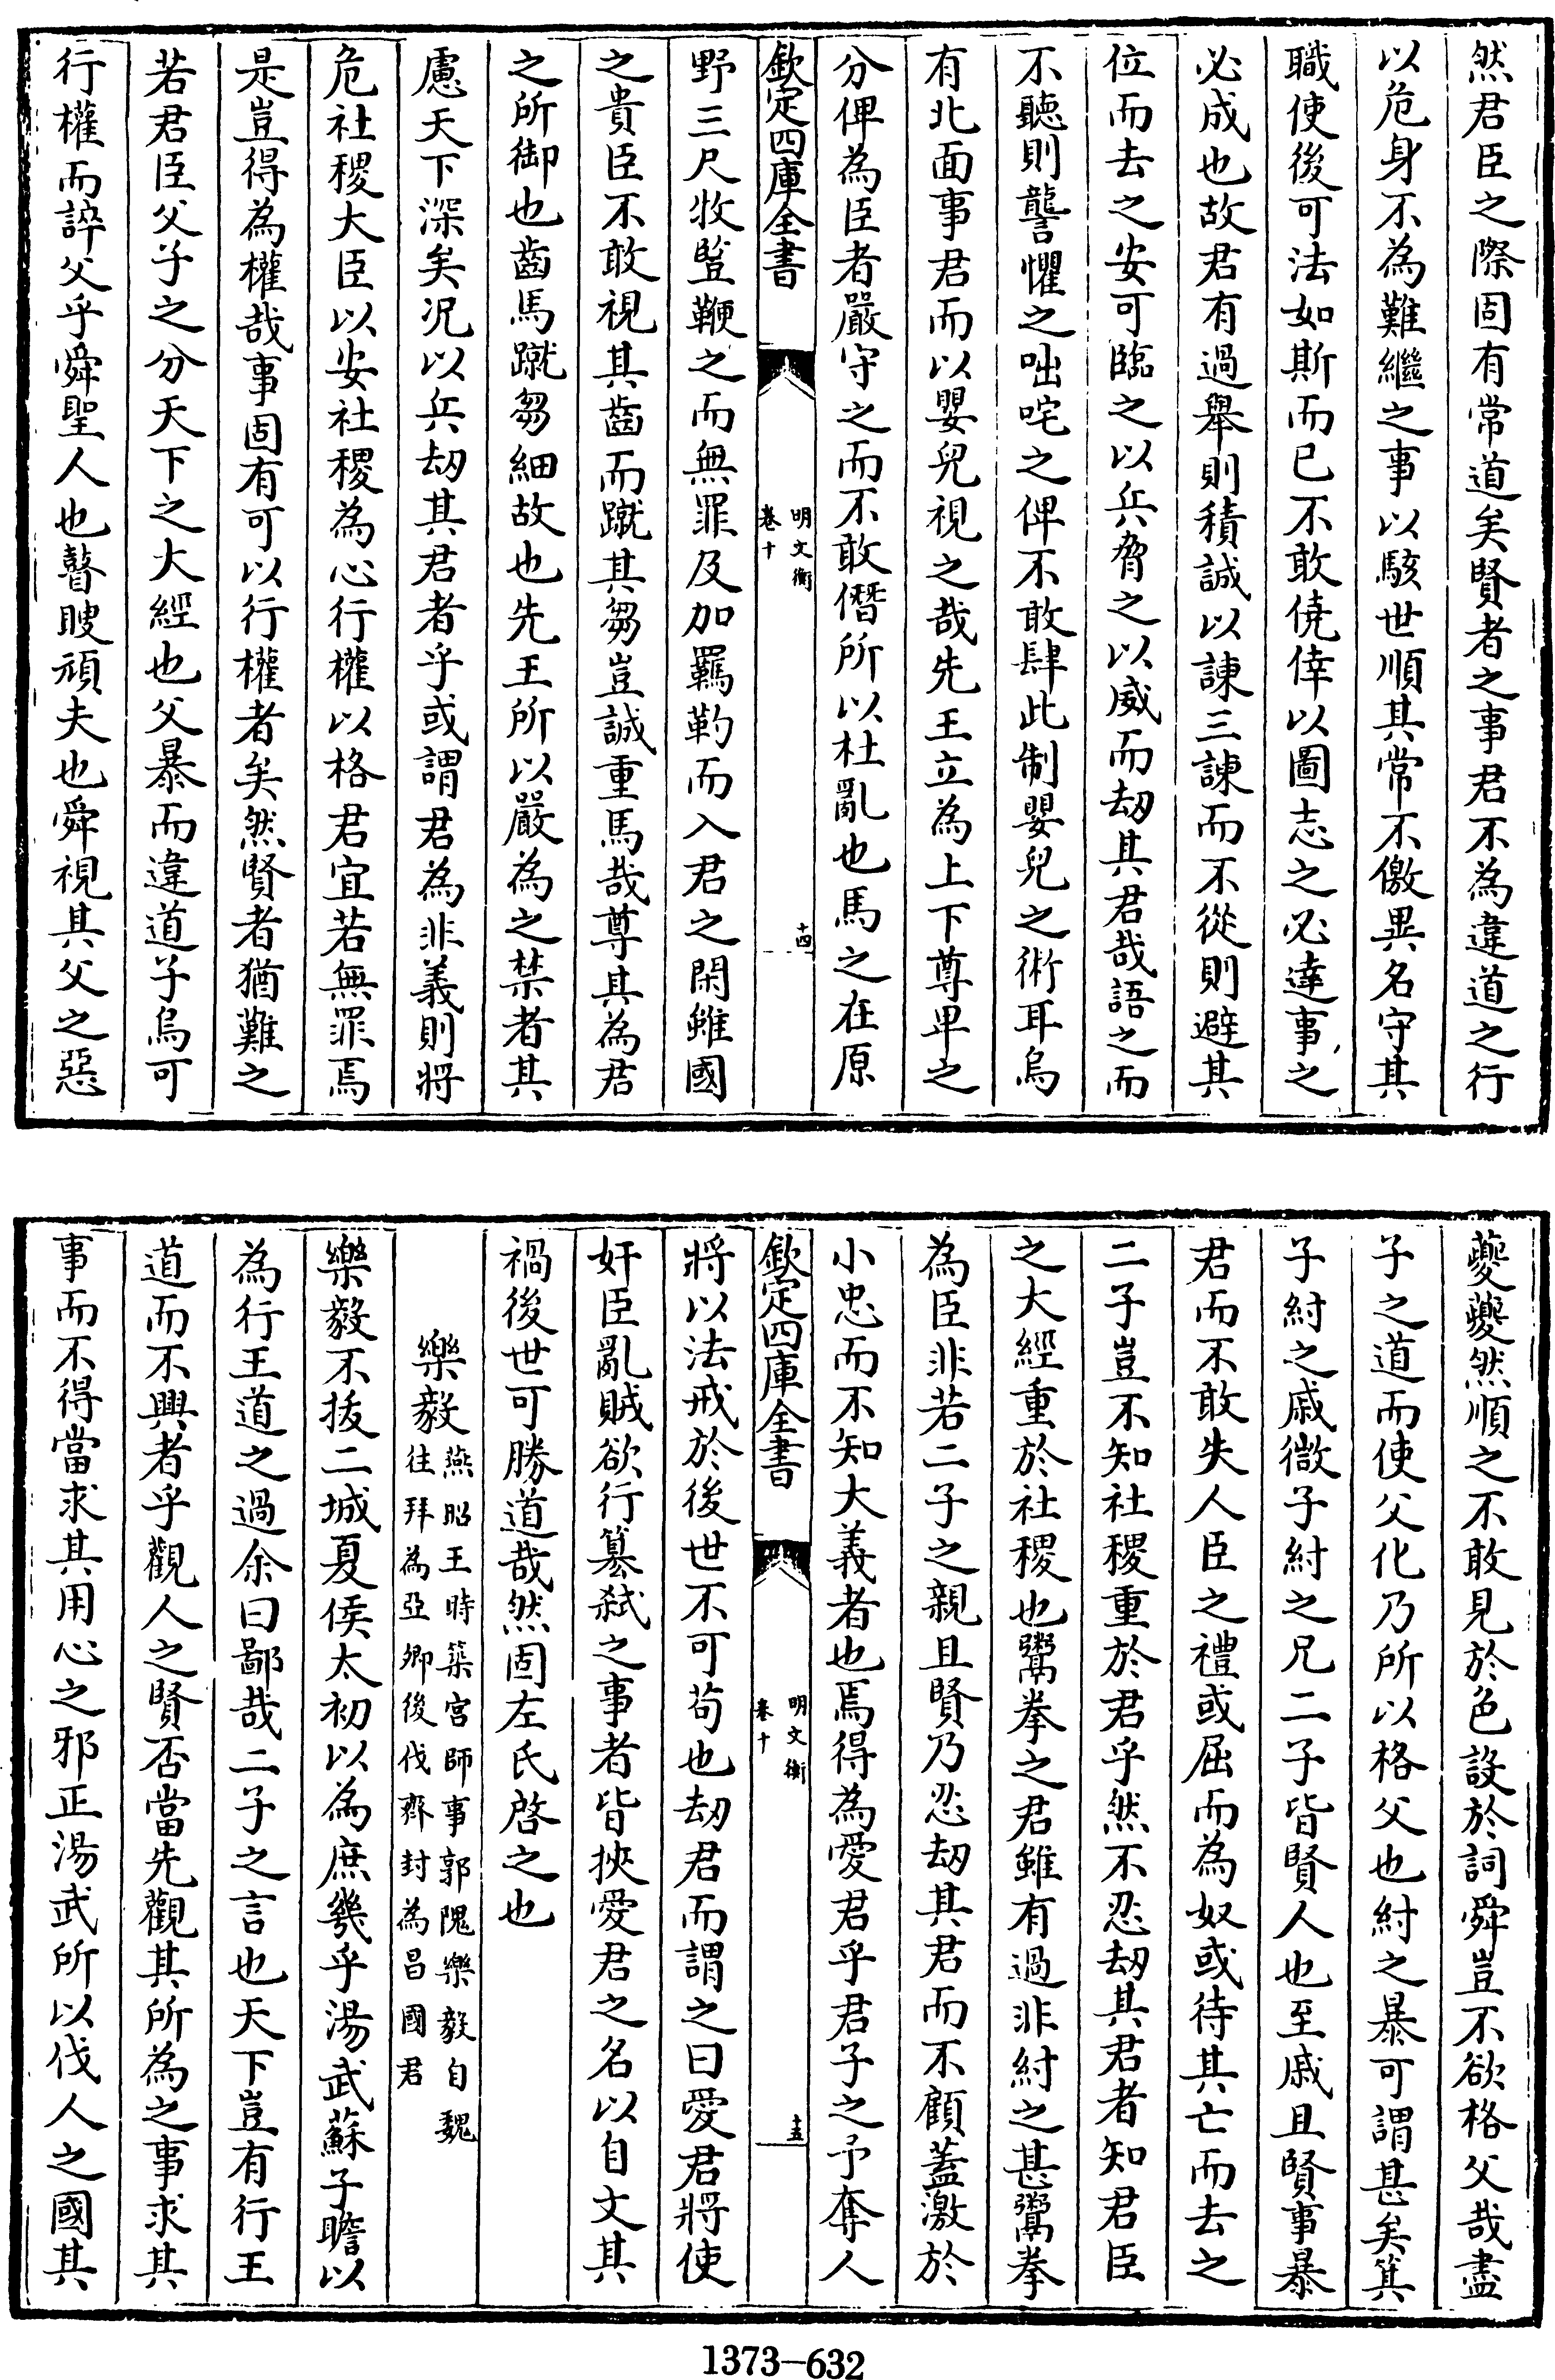 然君臣之際固有常道矣賢者之事君不為違道之行
以危身不為難繼之事以駭世順其常不儌異名守其
職使後可法如斯而已不敢僥倖以圖志之必達事之
必成也故君有過舉則積誠以諫三諫而不從則避其
位而去之安可臨之以兵脅之以威而刼其君哉語之而
不聽則讋懼之咄咤之俾不敢肆此制嬰兒之術耳烏
有北面事君而以嬰兒視之哉先王立為上下尊卑之
分俾為臣者嚴守之而不敢僭所以杜亂也馬之在原
欽定四庫全書
明文衡
卷十
十四
野三尺牧豎鞭之而無罪及加羈靮而入君之閑雖國
之貴臣不敢視其齒而蹴其芻豈誠重馬哉尊其為君
之所御也齒馬蹴芻細故也先王所以嚴為之禁者其
慮天下深矣况以兵刼其君者乎或謂君為非義則將
危社稷大臣以安社稷為心行權以格君宜若無罪焉
是豈得為權哉事固有可以行權者矣然賢者猶難之
若君臣父子之分天下之大經也父暴而違道子烏可
行權而誶父乎舜聖人也瞽瞍頑夫也舜視其父之惡
夔夔然順之不敢見於色設於詞舜豈不欲格父哉盡
子之道而使父化乃所以格父也紂之暴可謂甚矣箕
子紂之戚微子紂之兄二子皆賢人也至戚且賢事暴
君而不敢失人臣之禮或屈而為奴或待其亡而去之
二子豈不知社稷重於君乎然不忍刼其君者知君臣
之大經重於社稷也鬻拳之君雖有過非紂之甚鬻拳
為臣非若二子之親且賢乃忍刼其君而不顧蓋激於
小忠而不知大義者也焉得為愛君乎君子之予奪人
欽定四庫全書
明文衡
卷十
十五
將以法戒於後世不可苟也刼君而謂之曰愛君將使
奸臣亂賊欲行簒弑之事者皆挾愛君之名以自文其
禍後世可勝道哉然固左氏啓之也
樂毅燕昭王時築宫師事郭隗樂毅自魏
往拜為亞卿後伐齊封為昌國君
樂毅不拔二城夏侯太初以為庶幾乎湯武蘇子瞻以
為行王道之過余曰鄙哉二子之言也天下豈有行王
道而不興者乎觀人之賢否當先觀其所為之事求其
事而不得當求其用心之邪正湯武所以伐人之國其
1373-632